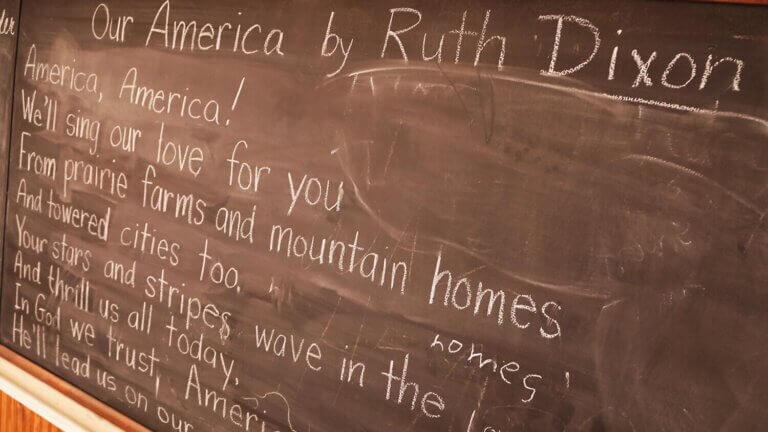 Our America by Ruth Dixon
America, America!
We'll sing our love for you
From prairie farms and mountain homes
And towered cities too.
homes
Your stars and stripes wave in the
And thrill us all today,
In God we trust,
He'll lead us on our